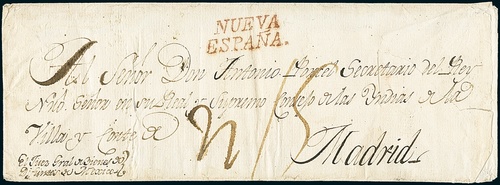 NUEVA
ESPAÑA.
Al Señor Don Antonio Porcel Secretario del Rey
Nro. Señor en su Real y Supremo Consejo de las Yndias de la
Villa y Corte de
Madrid
El Juez Gral de Bienes de
Difuntos de Mexico